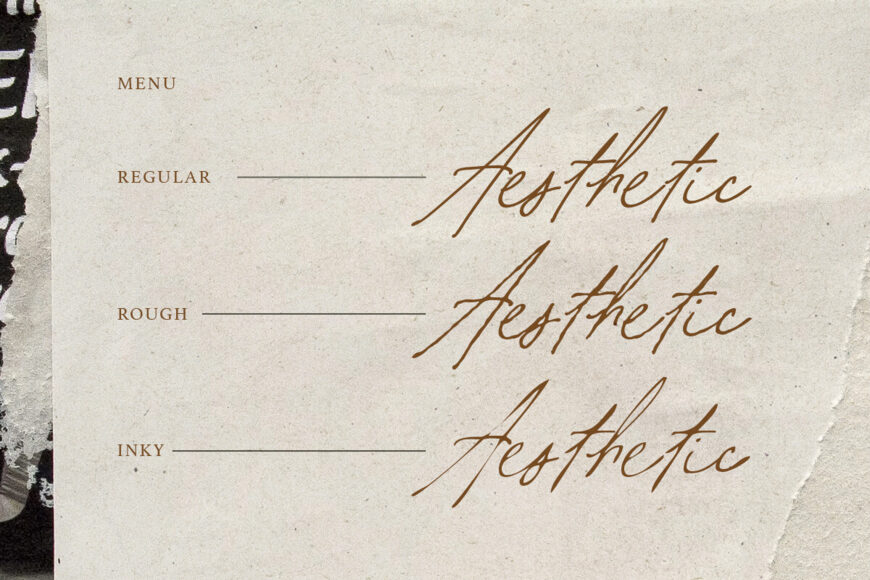 MENU
REGULAR Aesthetic
ROUGH Aesthetic
INKY Aesthetic